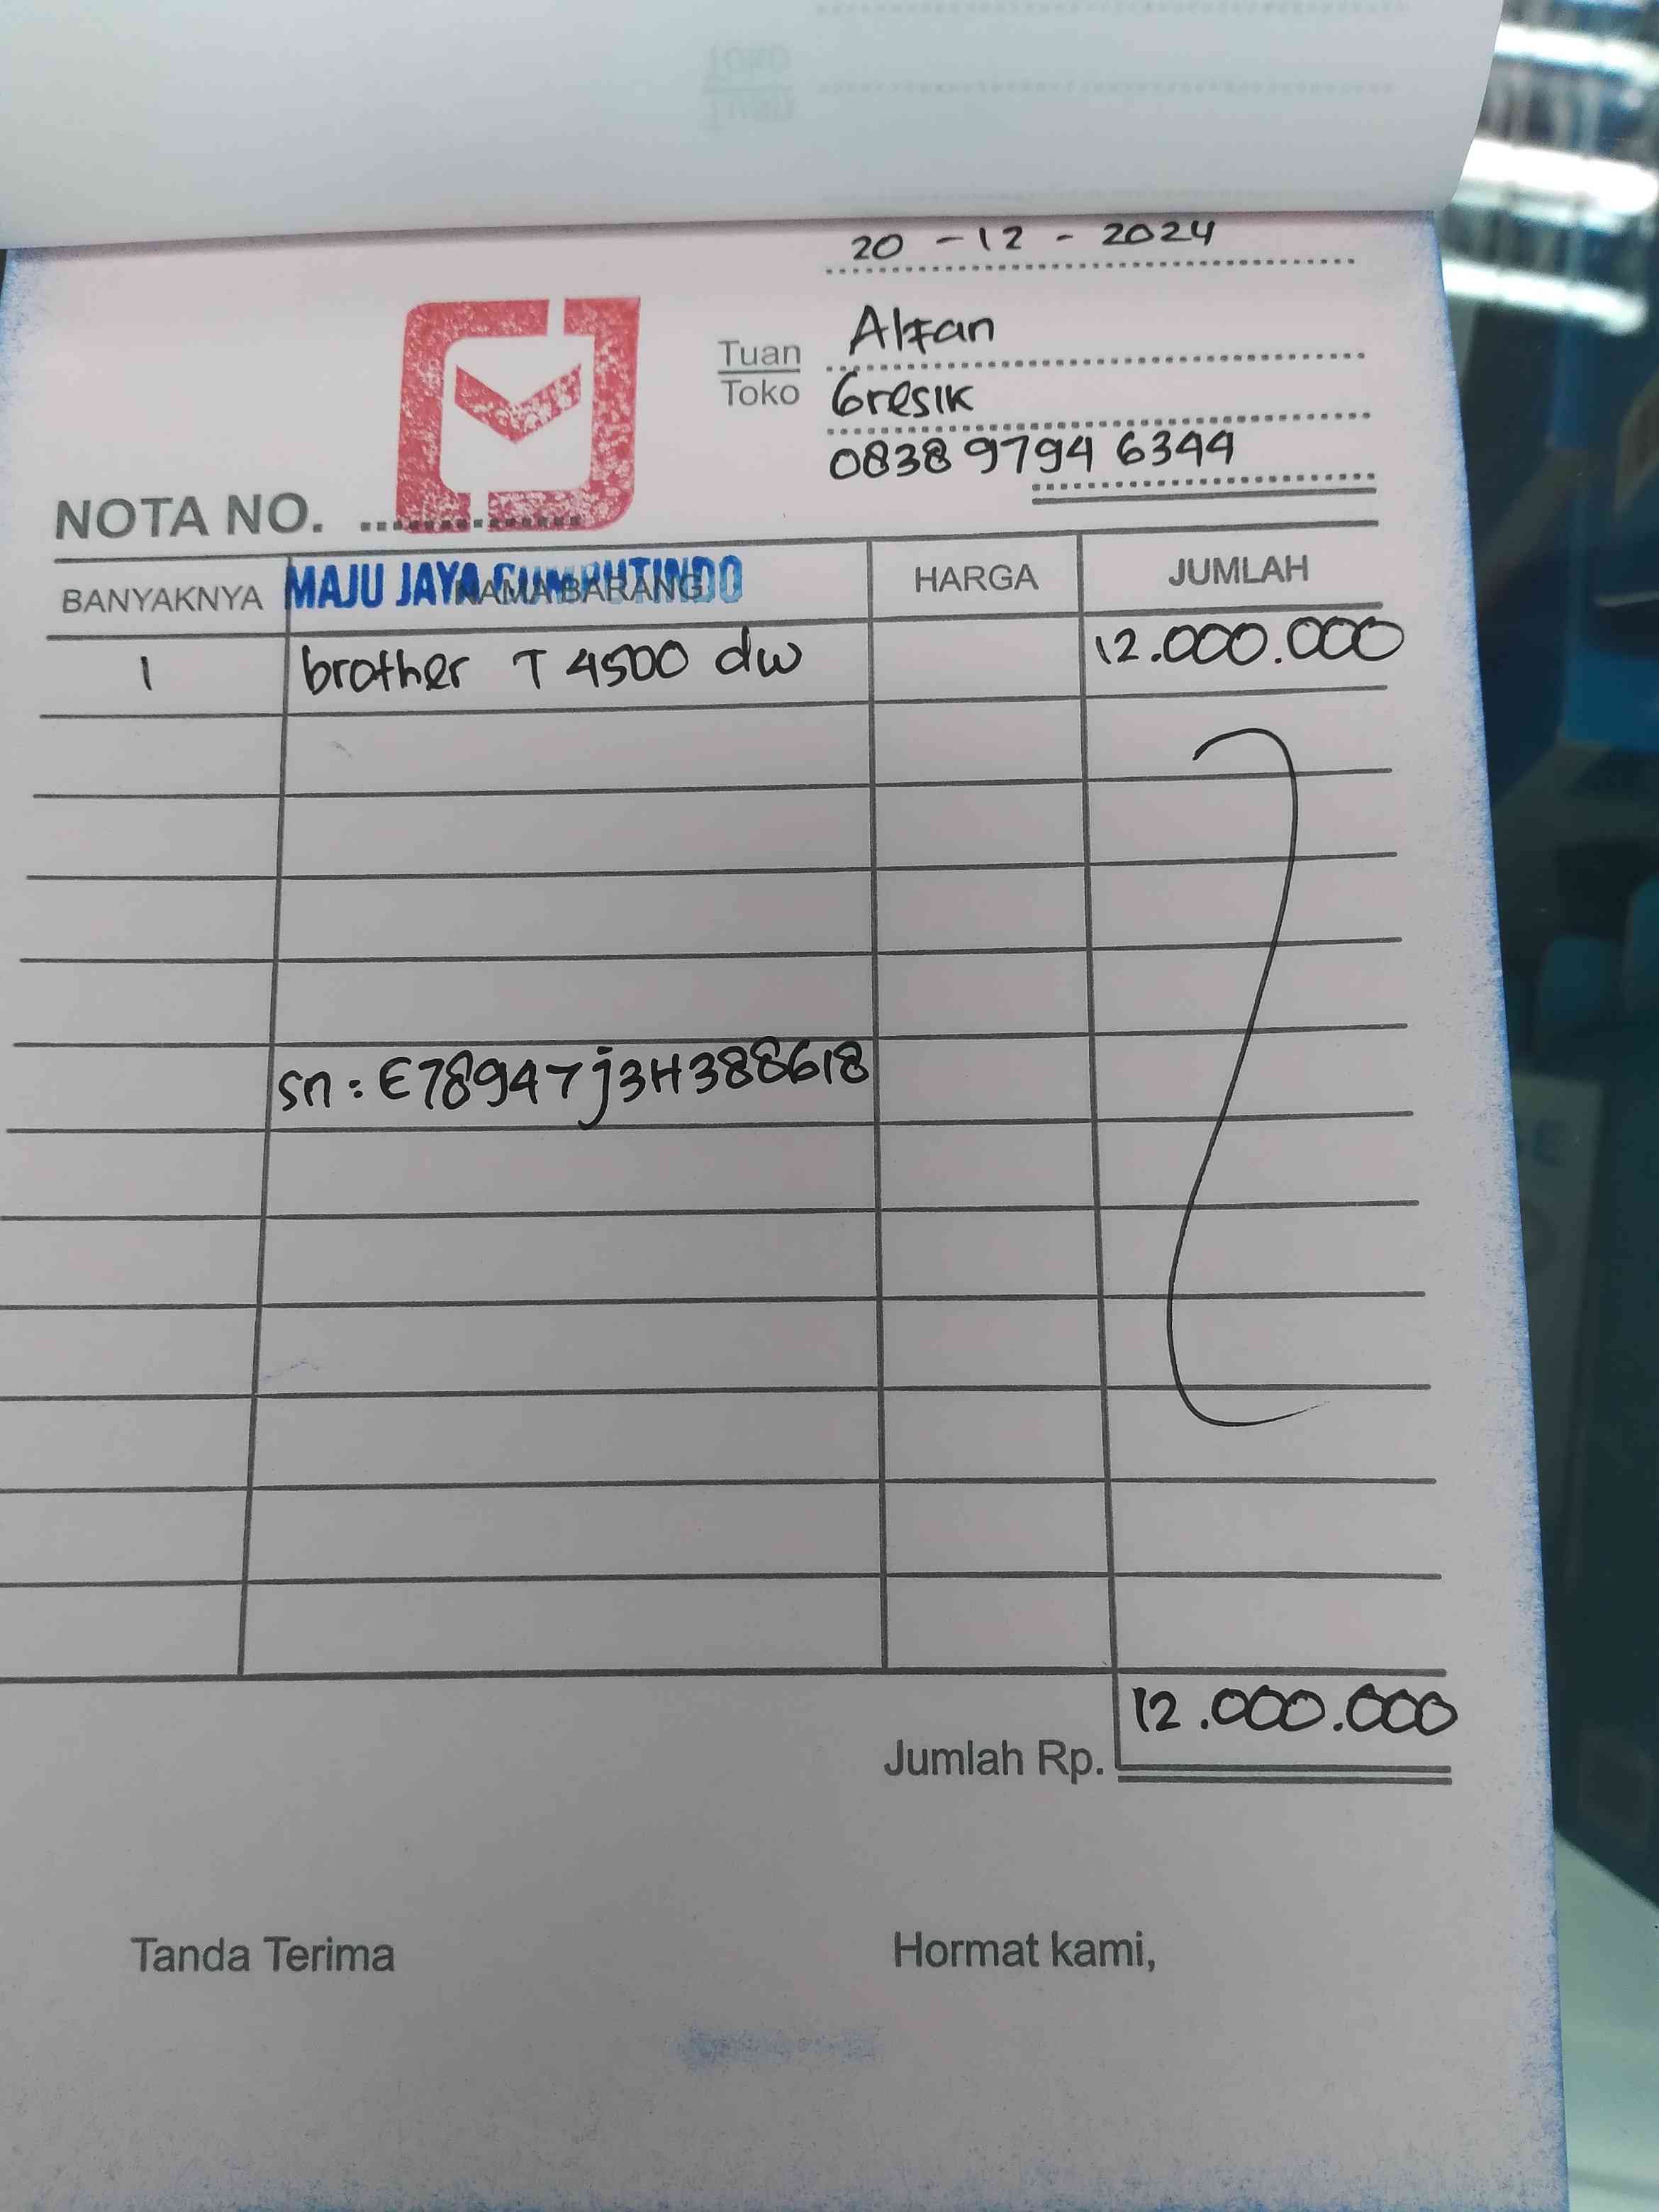 20 - 12 - 2024
Tuan
Toko
Alfan
Gresik
0838 9794 6344
NOTA NO. ................
MAJU JAYA
BANYAKNYA
NAMA BARANG
HARGA
JUMLAH
1 brother T 4500 dw 12.000.000
sn : E78947j3H388618
Jumlah Rp. 12.000.000
Tanda Terima
Hormat kami,